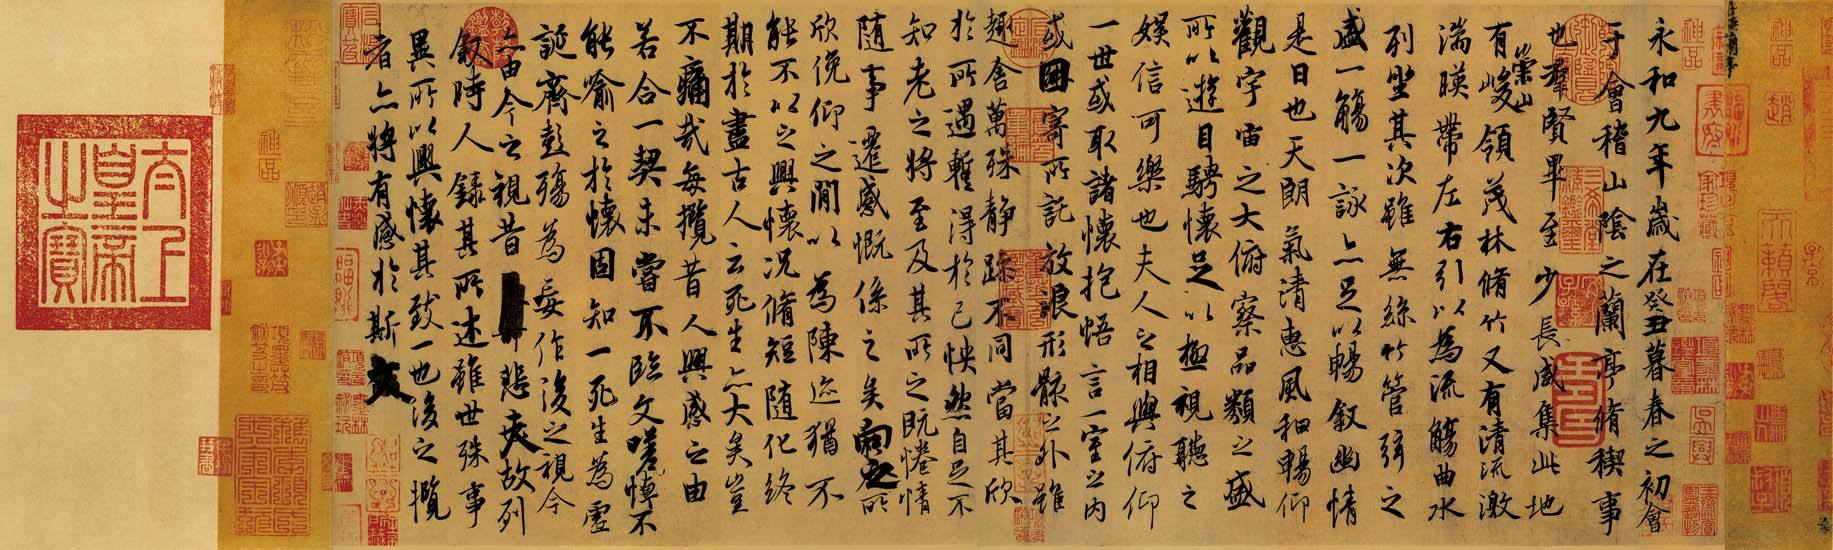 永和九年歲在癸丑暮春之初會
于會稽山陰之蘭亭脩稧事
也羣賢畢至少長咸集此地
有崇山峻領茂林脩竹又有清流激
湍暎帶左右引以為流觴曲水
列坐其次雖無絲竹管弦之
盛一觴一詠亦足以暢敘幽情
是日也天朗氣清惠風和暢仰
觀宇宙之大俯察品類之盛
所以遊目騁懷足以極視聽之
娛信可樂也夫人之相與俯仰
一世或取諸懷抱悟言一室之內
或因寄所託放浪形骸之外雖
趣舍萬殊靜躁不同當其欣
於所遇暫得於己怏然自足不
知老之將至及其所之既惓情
隨事遷感慨係之矣向之所
欣俛仰之閒以為陳迹猶不
能不以之興懷況脩短隨化終
期於盡古人云死生亦大矣豈
不痛哉每攬昔人興感之由
若合一契未嘗不臨文嗟悼不
能喻之於懷固知一死生為虛
誕齊彭殤為妄作後之視今
亦由今之視昔悲夫故列
敘時人錄其所述雖世殊事
異所以興懷其致一也後之攬
者亦將有感於斯文
太上
皇帝
之寶